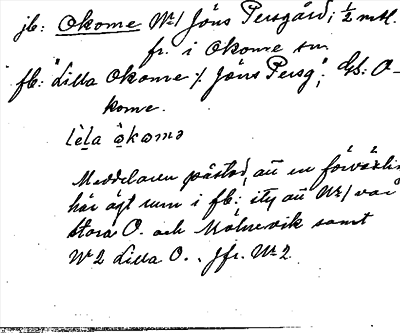 jb: Okome Nr 1 Jöns Persgård, ½ mtl.
fr. i Okome sn
fb: "Lilla Okome / Jöns Persg", Gb: O-
kome.
lèla òkomə
Meddelaren påstod, att en förväxlin
här ägt rum i fb: ity att Nr 1 var
Stora O. och Mölnevik samt
Nr 2 Lilla O. Jfr. Nr 2